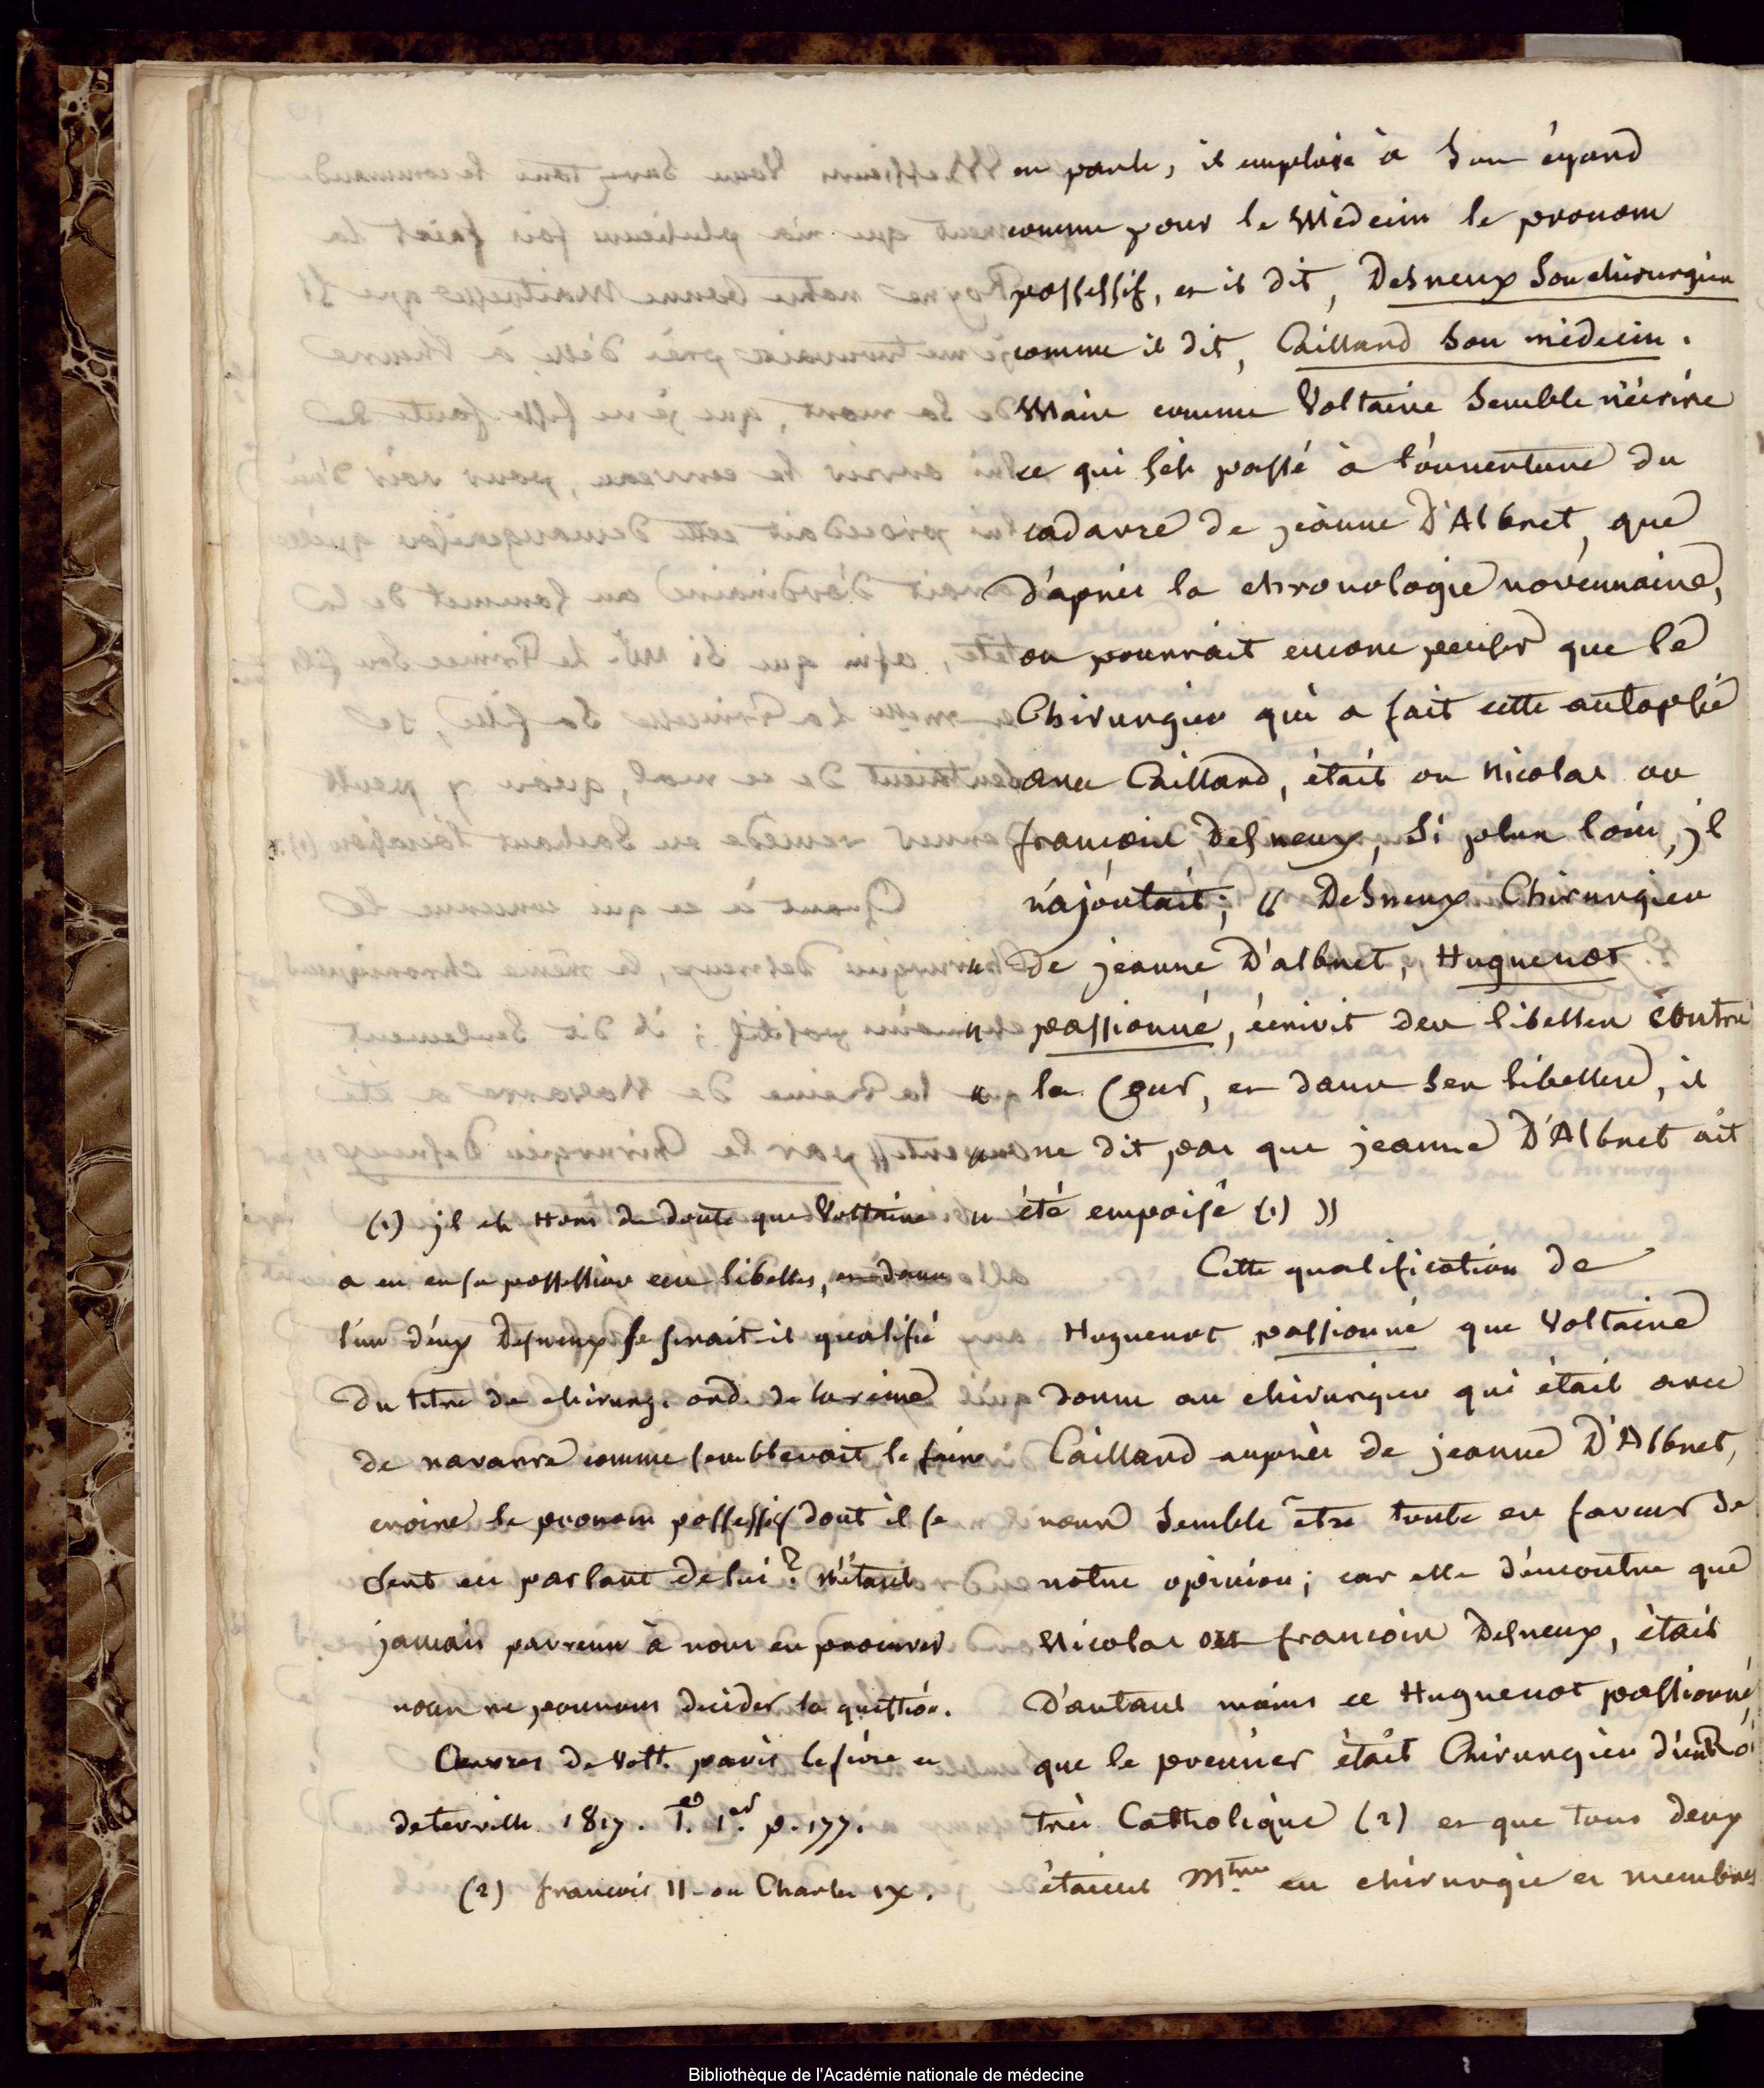 en parle, il emploie à son égard
comme pour le Médecin le pronom
possessif, et il dit, Desneux son chirurgien
comme il dit, Caillard son médecin.
Mais comme Voltaire semble n'écrire
ce qui s'est passé à l'ouverture du
cadavre de jeanne D'Albret, que
d'après la chronologie novennaire,
on pourrait encore penser que le
Chirurgien qui a fait cette autopsie
avec Caillard, était ou Nicolas ou
françois Desneux, si plus loin, il
n'ajoutait; « Desneux Chirurgien
« de jeanne D'albret, Huguenot
« passionné, écrivit des libelles contre
« la Cour, et dans ses libelles, il
« ne dit pas que jeanne D'Albret ait
« été empoisé (1) »
Cette qualification de
Huguenot passionné que Voltaine
donne au chirurgien qui était avec
Caillard auprès de jeanne D'Albret,
nous semble être toute en faveur de
notre opinion; car elle démontre que
Nicolas ou françois Desneux, était
D'autant moins ce Huguenot passionné,
que le premier était Chirurgien d'un Roi
très Catholique (2) et que tous deux
étaient Mtres en chirurgie et membres
(1) il est Hors de doute que Voltaire
a eu en sa possession ces libelles, et dans
l'un d'eux Desneux se serait-il qualifié
du titre de chirurg. ord. de la reine
de navarre comme semblerait le faire
croire le pronom possessif dont il se
sert en parlant de lui? N'étant
jamais parvenu à nous en procurer
nous ne pouvons décider la question.
Oeuvres de Volt. paris lefèvre et
deterville 1817. T. 1er. p. 177.
(2) francois II ou Charles IX.
Bibliothèque de l'Académie nationale de médecine